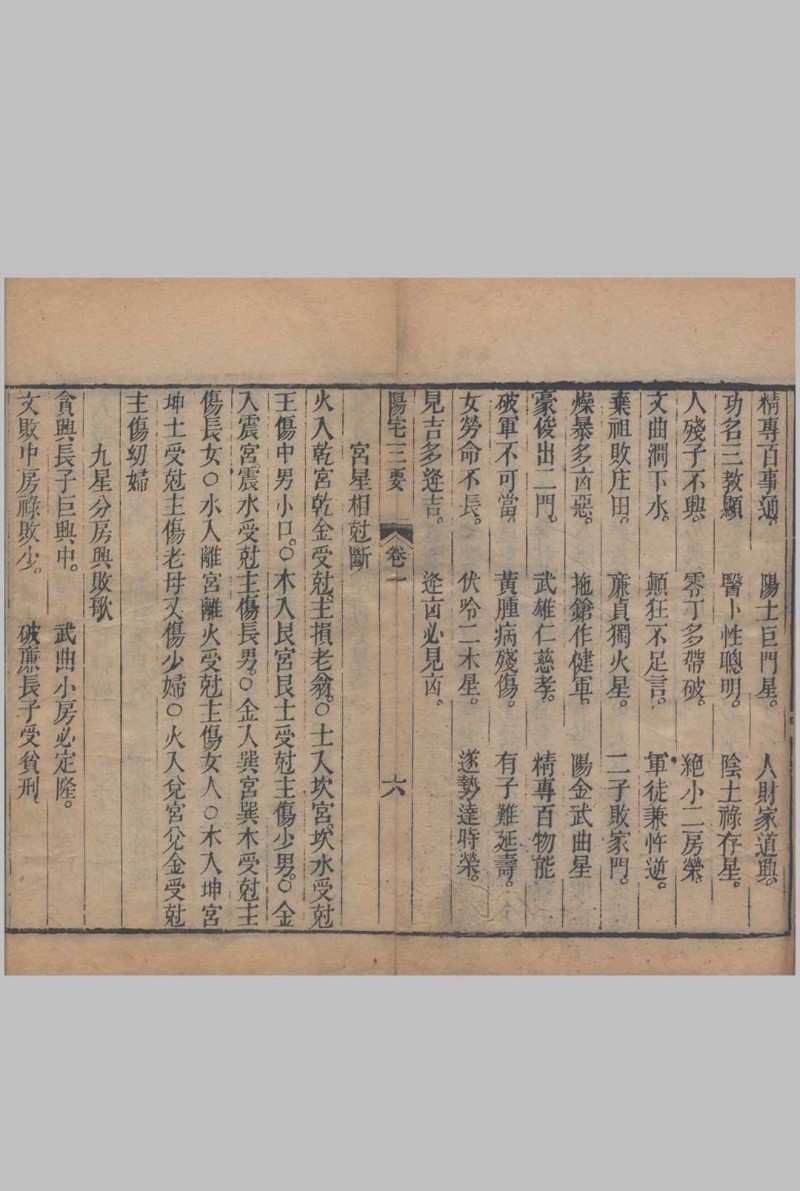 精專百事通。 陽土巨門星。 人財家道興。
功名三教顯 醫卜性聰明。 陰土祿存星。
人殘子不興。 零丁多帶破。 絶小二房榮。
文曲澗下水。 顛狂不足言。 軍徒兼忤逆。
棄祖敗庄田。 廉貞獨火星。 二子敗家門。
燥暴多㐫惡。 拖鎗作健軍。 陽金武曲星
豪俊出二門。 武雄仁慈孝。 精專百物能
破軍不可當。 黃腫病殘傷。 有子難延壽。
女勞命不長。 伏吟二木星。 遂勢達時榮。
見吉多逢吉。 逢㐫必見㐫。
陽宅三要 卷一 六
宮星相尅斷
火入乾宮乾金受尅。主損老翁。○土入坎宮。坎水受尅
主傷中男小口。○木入艮宮艮土受尅主傷少男。○金
入震宮震水受尅主傷長男。○金入巽宮巽木受尅主
傷長女○水入離宮離火受尅主傷女人○木入坤宮
坤土受尅主傷老母又傷少婦○火入兌宮兌金受尅
主傷幼婦
九星分房興敗歌
貪興長子巨興中。 武曲小房必定隆。
文敗中房祿敗少。 破廉長子受貧刑